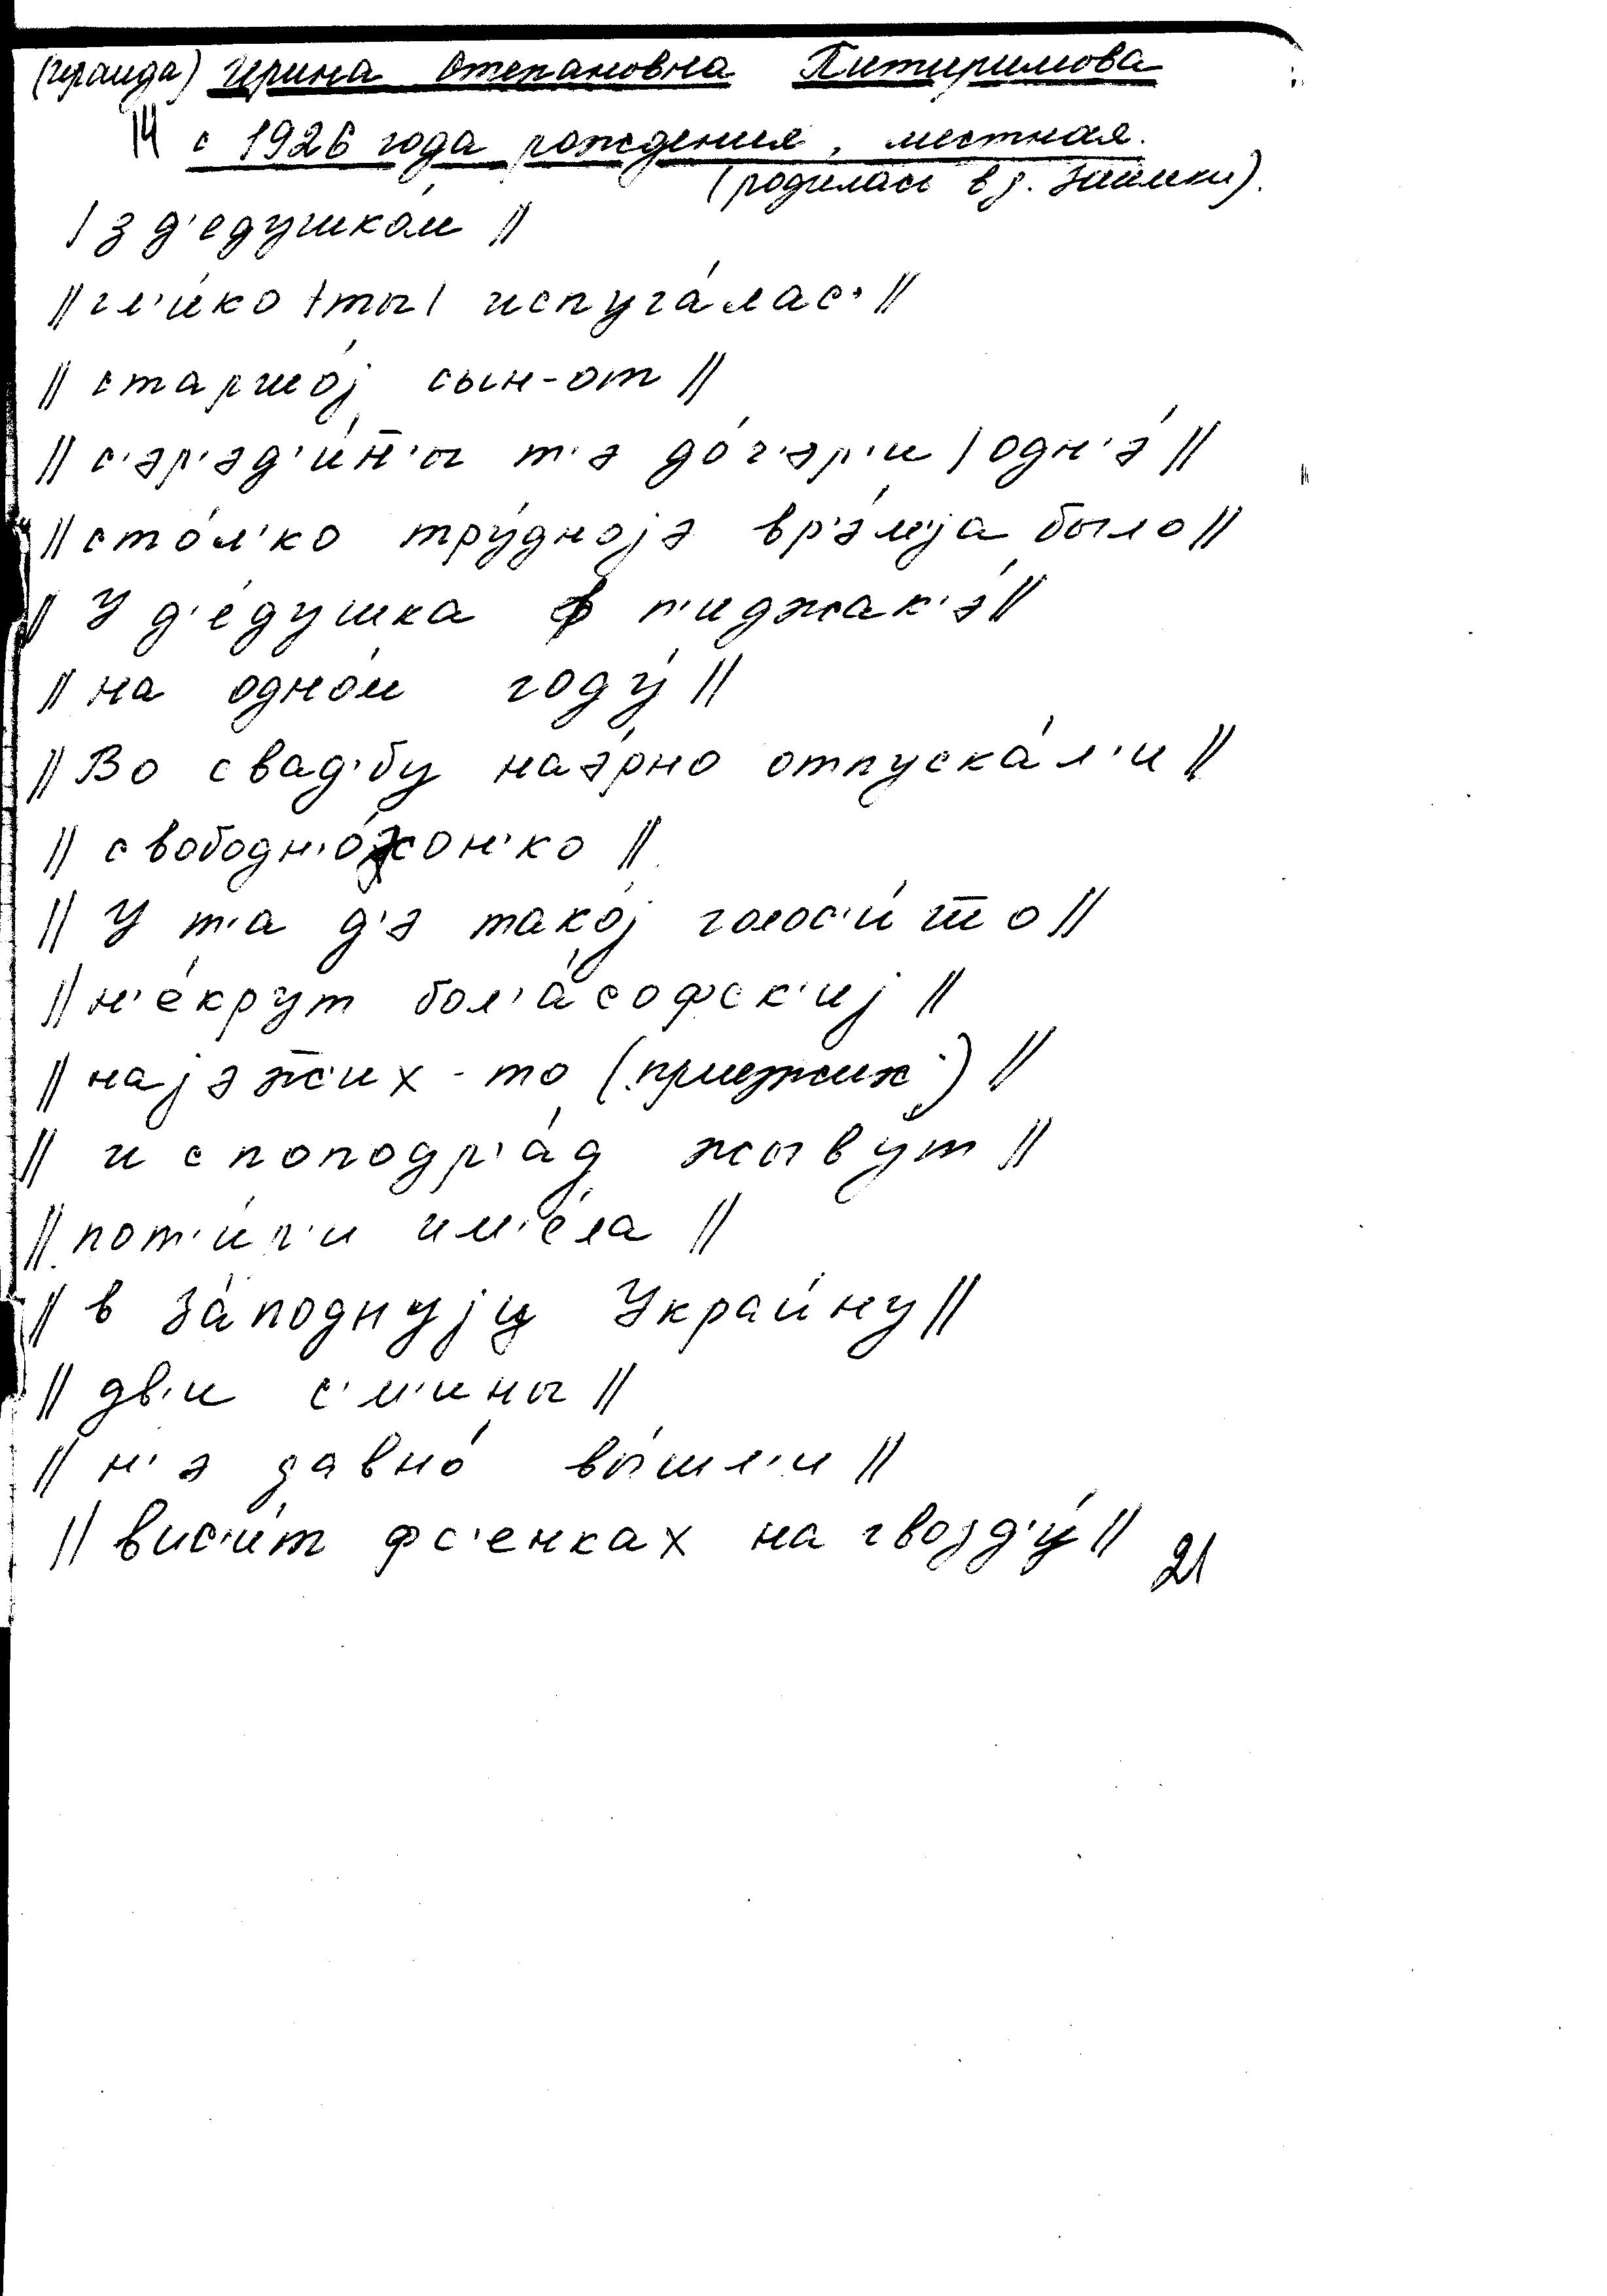 (Ираида) Ирина Степановна Питиримова
14 с 1926 года рождения, местная.
(родилась в д. Займки).
| з д'едушкой ||
|| гл'и́ко | ты | испуга́лас' ||
|| старшо́j сын-от ||
|| с'эр'эд'и́н̅'ы т'э до́ч'эр'и | одн'э́ ||
|| сто́л'ко тру́дноjэ вр'э́м'jа было ||
|| У д'е́душка ф п'иджак'э́ ||
|| на одно́м году́ ||
|| Во свад'бу наэ́рно отпуска́л'и ||
|| свободн'о́хон'ко ||
|| У т'а д'э тако́j голос'и́т̅о ||
|| н'е́крут бол'а́софск'иj ||
|| наjэж̅'их-то (приежжих) ||
|| и споподр'а́д жыву́т ||
|| пот'и́г'и им'е́ла ||
|| в за́поднуjу Украи́ну ||
|| дв'и с'м'ины ||
|| н'э давно́ вы́шл'и ||
|| вис'и́т фс'енках на гвозд'у́ ||
21